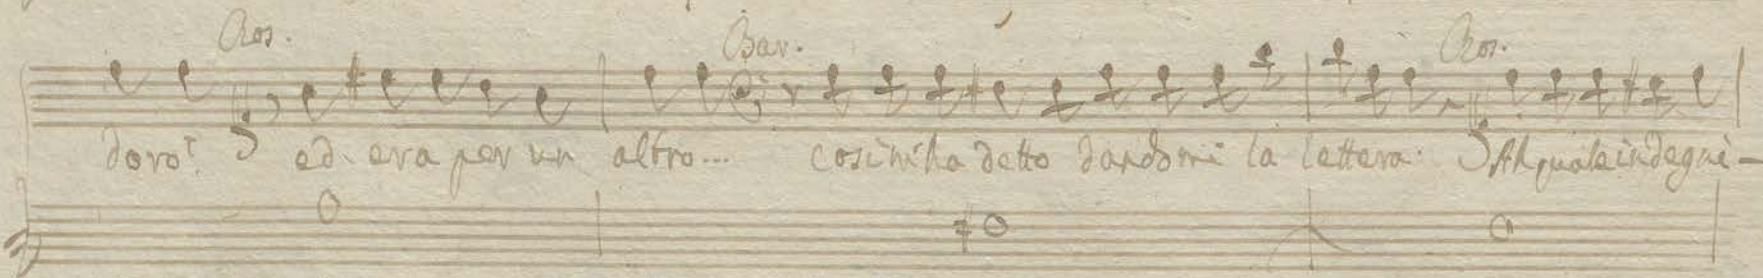 Ros. Bar. Ros.
doro? ed. era per un altro... cosi m'ha detto dandomi la lettera. Ah quale indegni-